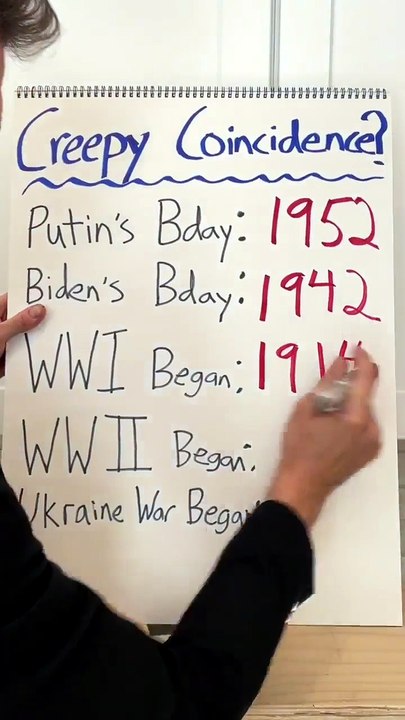 Creepy Coincidence?
Putin's Bday: 1952
Biden's Bday: 1942
WWI Began: 1914
WWII Began:
Ukraine War Began